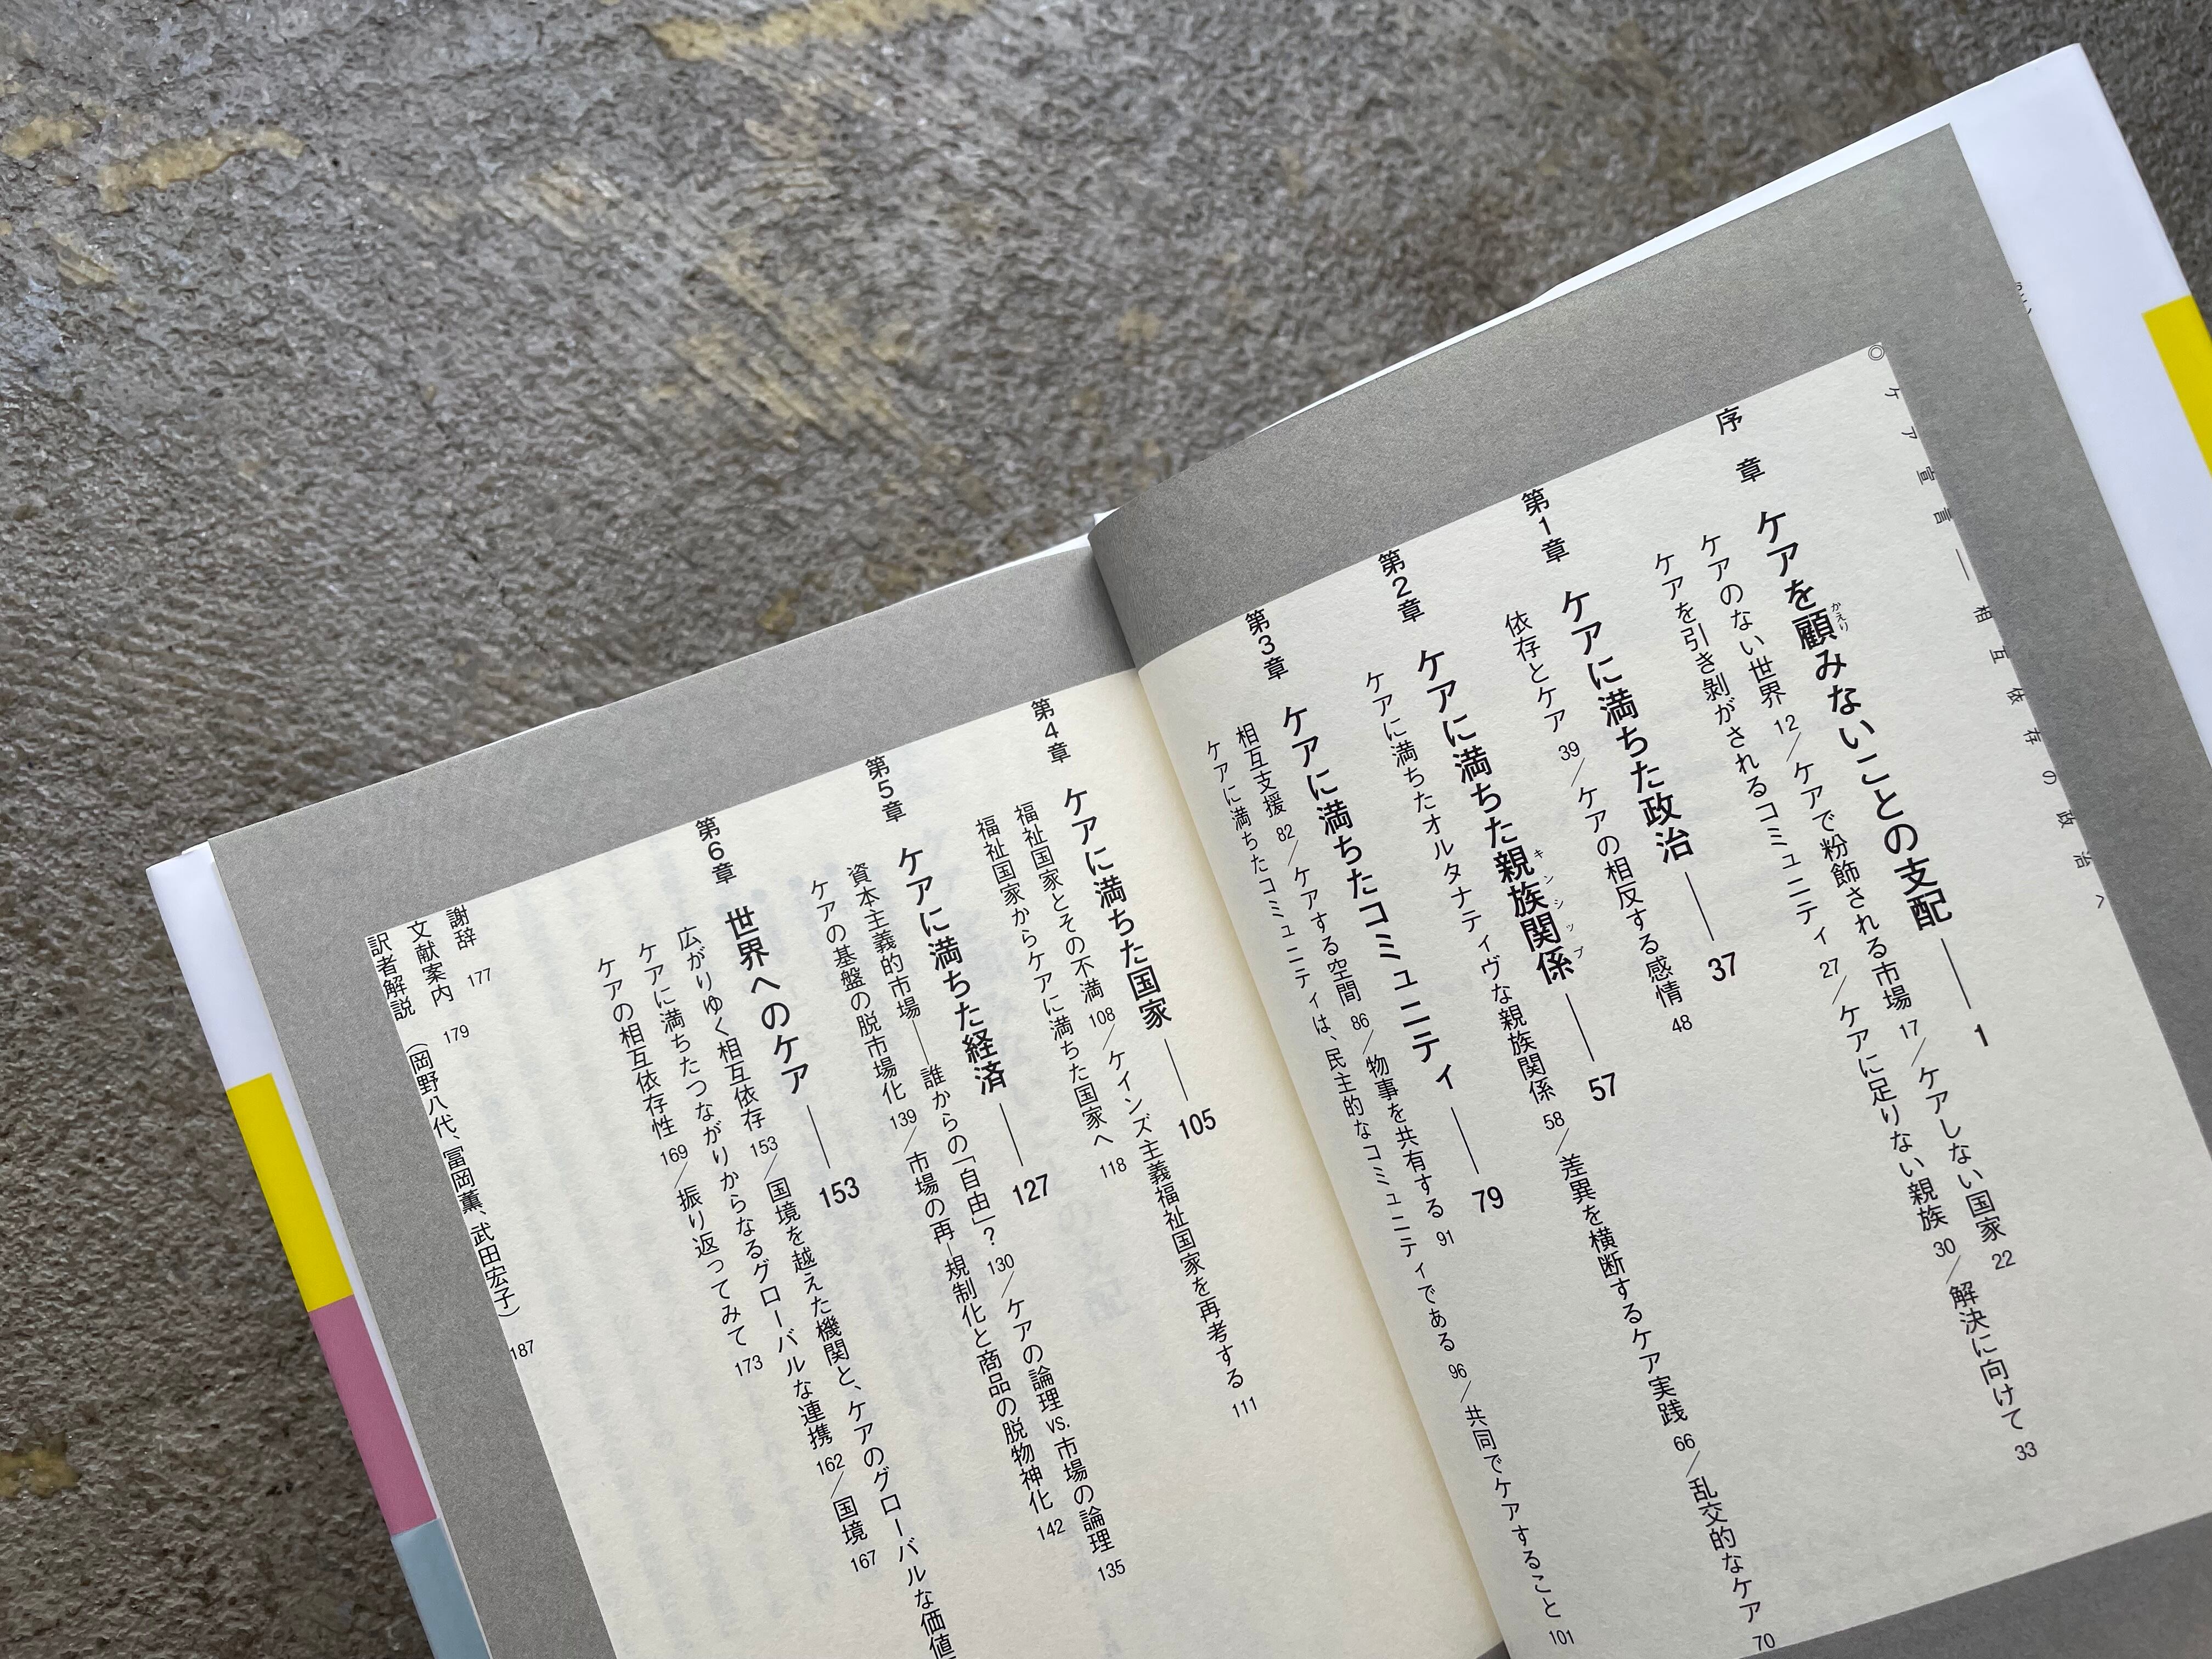 ◎ケア宣言―相互依存の政治へ
序章 ケアを顧みないことの支配――1
かえり
ケアのない世界 12／ケアで粉飾される市場 17／ケアしない国家 22
ケアを引き剝がされるコミュニティ 27／ケアに足りない親族 30／解決に向けて 33
第1章 ケアに満ちた政治――37
依存とケア 39／ケアの相反する感情 48
第2章 ケアに満ちた親族関係――57
キンシップ
ケアに満ちたオルタナティヴな親族関係 58／差異を横断するケア実践 66／乱交的なケア 70
第3章 ケアに満ちたコミュニティ――79
相互支援 82／ケアする空間 86／物事を共有する 91
ケアに満ちたコミュニティは、民主的なコミュニティである 96／共同でケアすること 101
第4章 ケアに満ちた国家――105
福祉国家とその不満 108／ケインズ主義福祉国家を再考する 111
福祉国家からケアに満ちた国家へ 118
第5章 ケアに満ちた経済――127
資本主義的市場――誰からの「自由」？ 130／ケアの論理 vs. 市場の論理 135
ケアの基盤の脱市場化 139／市場の再―規制化と商品の脱物神化 142
第6章 世界へのケア――153
広がりゆく相互依存 153／国境を越えた機関と、ケアのグローバルな価値
ケアに満ちたつながりからなるグローバルな連携 162／国境 167
ケアの相互依存性 169／振り返ってみて 173
謝辞 177
文献案内 179
訳者解説（岡野八代、冨岡薫、武田宏子） 187